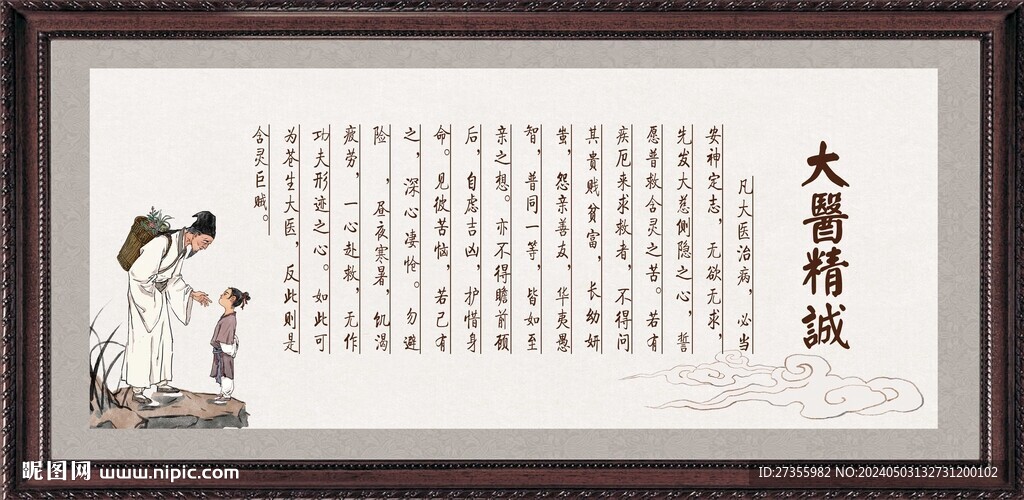 大醫精誠
凡大医治病，必当
安神定志，无欲无求，
先发大慈側隐之心，誓
愿普救含灵之苦。若有
疾厄来求救者，不得问
其貴贱貧富，长幼妍
蚩，怨亲善友，华夷愚
智，普同一等，皆如至
亲之想。亦不得瞻前顾
后，自虑吉凶，护惜身
命。见彼苦恼，若己有
之，深心凄怆。勿避
险 ，昼夜寒暑，饥渴
疲劳，一心赴救，无作
功夫形迹之心。如此可
为苍生大医，反此则是
含灵巨贼。
昵图网 www.nipic.com
ID:27355982 NO:20240503132731200102